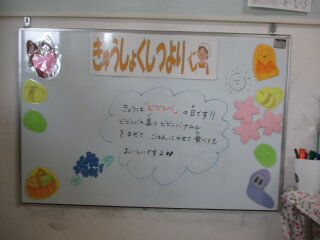 きゅうしょくしつより
きょうは「ビビンバ」の日です!!
ビビンバの具でビビンバナムル
をまぜて ごはんにのせて 食べても
おいしいですよ